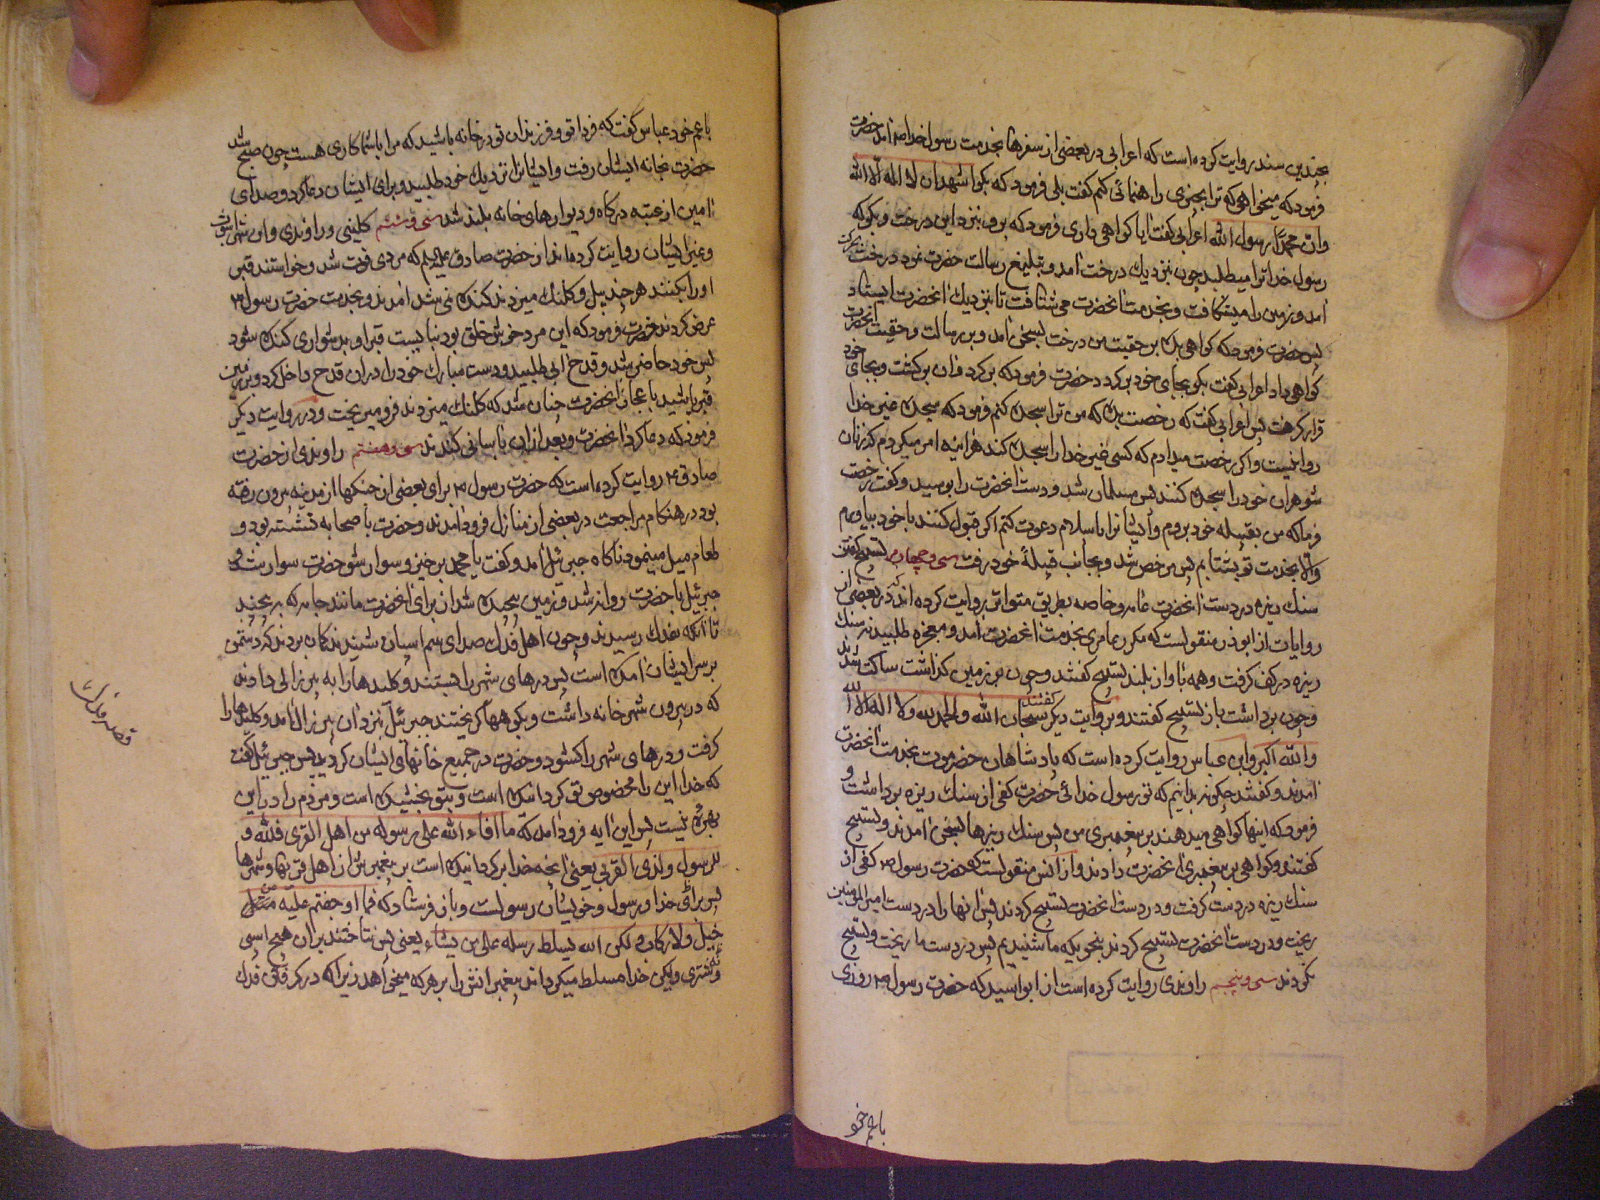 بچندین سند روایت کرده است که اعرابی در بعضی از سفرها بخدمت رسول خدا ص آمد حضرت
فرمود که میخواهی که ترا بچیزی راهنمائی کنم گفت بلی فرمود که بگو اشهد ان لا اله الا الله
وان محمدا رسول الله اعرابی گفت آیا کواهی داری فرمود که برو بنزد این درخت و بگو که
رسول خدا ترا میطلبد چون بنزدیك درخت آمد و تبلیغ رسالت حضرت نمود درخت بحرکت
آمد و زمین را میشکافت و بخدمت آنحضرت می شتافت تا بنزدیك آنحضرت ایستاد
پس حضرت فرمود که کواهی بده بر حقیت من درخت بسخن آمد و بر رسالت و حقیت آنحضرت
کواهی داد اعرابی گفت بگو بجای خود برگردد حضرت فرمود که برگرد دران برگشت و بجای خود
قرار گرفت پس اعرابی گفت که رخصت بده که من ترا سجده کنم فرمود که سجده غیر خدا
روا نیست و اگر رخصت میدادم که کسی غیر خدا را سجده کند هر آینه امر میکردم که زنان
شوهران خود را سجده کنند پس مسلمان شد و دست آنحضرت را بوسید و گفت رخصت
فرما که من بقبیله خود بروم و ایشانرا باسلام دعوت کنم اگر قبول کنند با خود بیاورم
والا بخدمت تو بشتابم پس مرخص شد و بجانب قبیلهٔ خود رفت سی و چهارم تسبیح گفتن
سنك ریزه در دست آنحضرت عامه و خاصه بطریق متواتر روایت کرده اند که در بعضی از
روایات از ابوذر منقولست که مکرر عامری بخدمت آنحضرت آمد و معجزه طلبید نه سنك
ریزه در کف گرفت و همه بآواز بلند تسبیح گفتند و چون بر زمین گذاشت ساکت شدند
و چون برداشت باز تسبیح گفتند و بروایت دیگر گفتند سبحان الله والحمد لله ولا اله الا الله
والله اکبر و ابن عباس روایت کرده است که پادشاهان حضرموت بخدمت آنحضرت
آمدند و گفتند چگونه بدانیم که تو رسول خدائی حضرت کفی از سنك ریزه برداشت و
فرمود که اینها کواهی میدهند بر پیغمبری من پس سنك ریزها بسخن آمدند و تسبیح
گفتند و کواهی بر پیغمبری آنحضرت دادند و از انس منقولست که حضرت رسول ص کفی از
سنك ریزه در دست گرفت و در دست آنحضرت تسبیح کردند پس آنها را در دست امیرالمؤمنین
ریخت و در دست آنحضرت تسبیح کردند بنحویکه ما شنیدیم پس در دست ما ریخت و تسبیح
نکردند سی و پنجم راوندی روایت کرده است از ابو اسید که حضرت رسول ص روزی
با عم خو
با عم خود عباس گفت که فردا تو و فرزندان تو در خانه باشید که مرا با شما کاری هست چون صبح شد
حضرت بخانه ایشان رفت و ایشانرا نزدیك خود طلبید و برای ایشان دعا کرد و صدای
آمین از عتبه درگاه و دیوارهای خانه بلند شد سی و ششم کلینی و راوندی و ابن شهراشوب
و غیر ایشان روایت کرده اند از حضرت صادق علیه السلم که مردی فوت شد و خواستند قبر
او را بکنند هر چند بیل و کلنك میزدند کنده نمیشد آمدند و بخدمت حضرت رسول ص
عرض کردند حضرت فرمود که این مرد خوش خلق بود بنایست قبر او بدشواری کنده شود
پس خود حاضر شد و قدح آبی طلبید و دست مبارك خود را در ان قدح داخل کرد و بر زمین
قبر پاشید باعجاز آنحضرت چنان شد که کلنك میزدند فرو میریخت و در روایت دیگر
فرمود که دعا کرد آنحضرت و بعد از ان بآسانی کندند سی و هفتم راوندی از حضرت
صادق ع روایت کرده است که حضرت رسول ص برای بعضی از جنکها از مدینه بیرون رفته
بود در هنگام مراجعت در بعضی از منازل فرود آمدند و حضرت با صحابه نشسته بود و
طعام میل مینمود ناگاه جبرئیل آمد و گفت یا محمد برخیز و سوار شو حضرت سوار شد و
جبرئیل با حضرت روانه شد و زمین پیچیده شد از برای آنحضرت مانند جامه که بپیچند
تا آنکه بفدك رسیدند و چون اهل فدك صدای سم اسبان شنیدند گمان بردند که دشمن
بر سر ایشان آمده است پس درهای شهر را بستند و کلیدها را به پیر زالی دادند
که در بیرون شهر خانه داشت و بکوهها گریختند جبرئیل بنزد ان پیر زال آمد و کلیدها را
گرفت و درهای شهر را گشود و حضرت در جمیع خانهای ایشان گردید پس جبرئیل گفت
که خدا این را مخصوص تو گردانیده است و بتو بخشیده است و مردم را در این
بهره نیست پس این آیه فرود آمد که ما افاء الله علی رسوله من اهل القری فلله و
للرسول ولذی القربی یعنی آنچه خدا برگردانیده است بر پیغمبرش از اهل قریها و شهرها
پس برای خدا و رسول و خویشان رسولست و باز فرستاد که فما اوجفتم علیه من
خیل ولا رکاب ولکن الله یسلط رسله علی من یشاء یعنی پس نتاختند بران هیچ اسبی
و نه شتری ولیکن خدا مسلط میگرداند پیغمبرانش را بر هر که میخواهد زیرا که در گرفتن فدك
قصه فدك